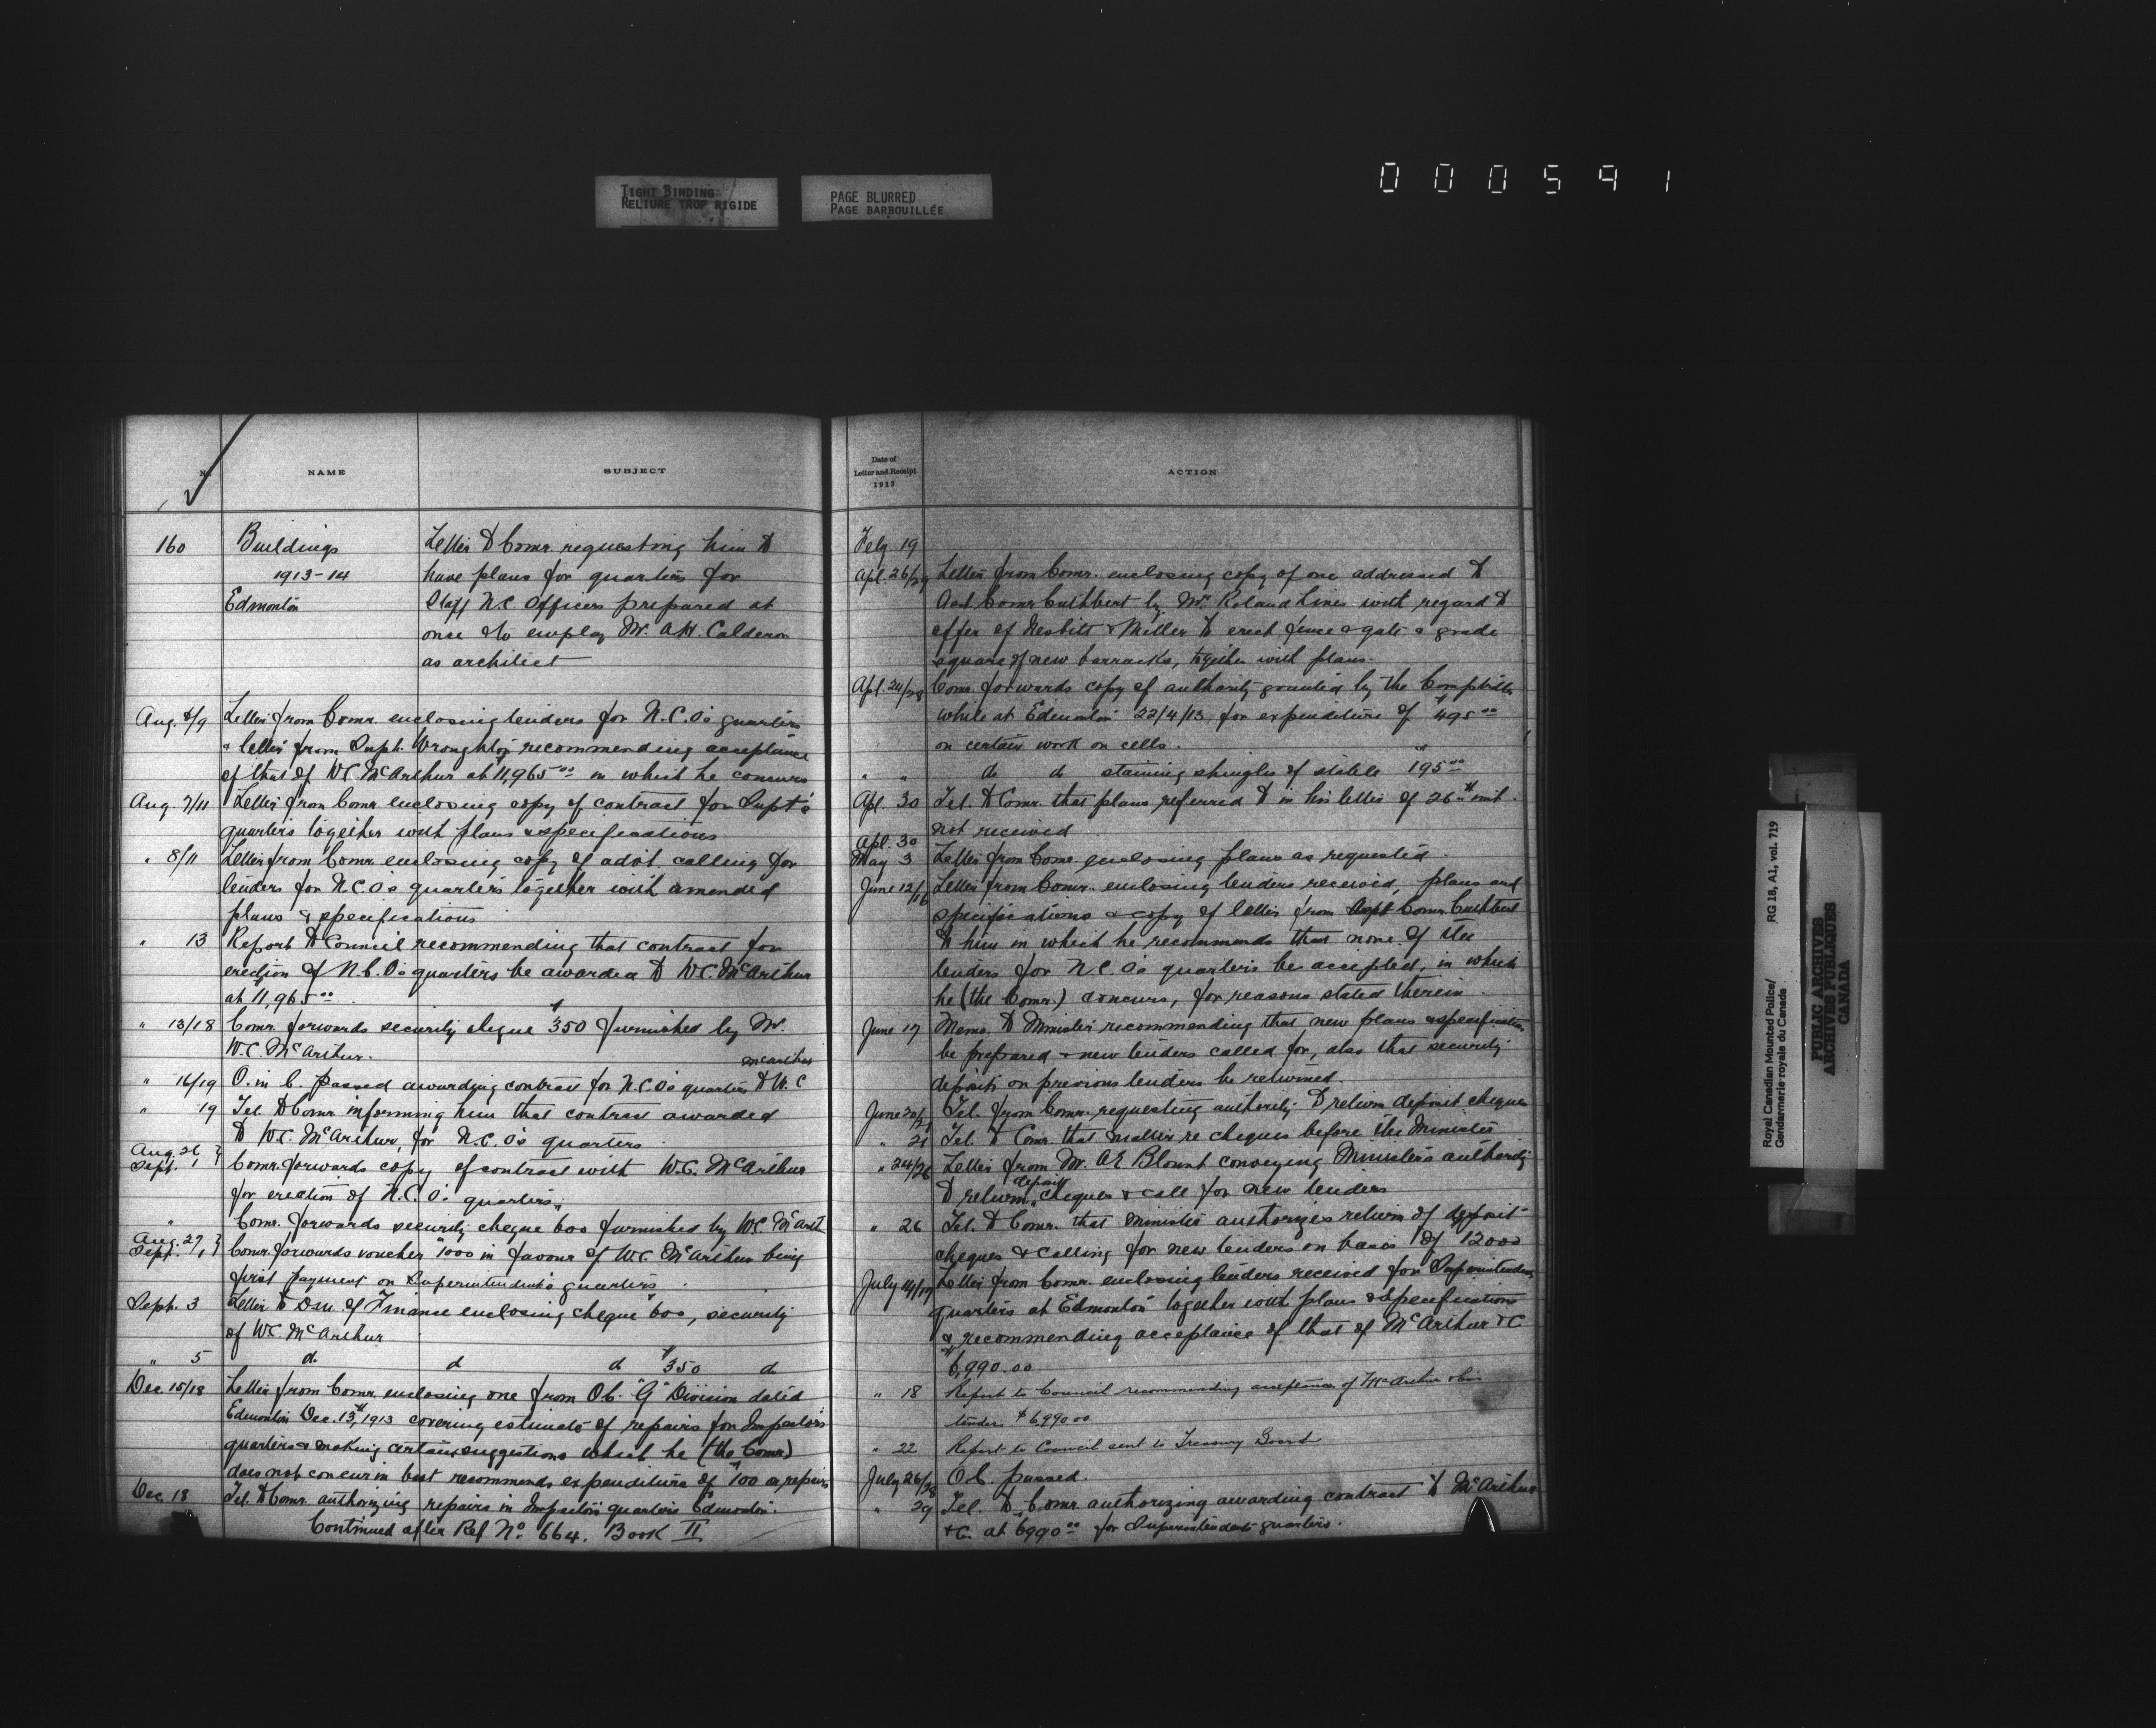 TIGHT BINDING
RELIURE TROP RIGIDE
PAGE BLURRED
PAGE BARBOUILLÉE
000591
No. NAME SUBJECT
160 Buildings Letter to Comr. requesting him to
1913-14 have plans for quarters for
Edmonton Staff N.C. Officers prepared at
once & to employ Mr. A.H. Calderon
as architect
Aug. 8/9 Letter from Comr. enclosing tenders for N.C.O's quarters
& letter from Supt. Wroughton recommending acceptance
of that of W.C. McArthur at $11,965.00 in which he concurs
Aug. 7/11 Letter from Comr. enclosing copy of contract for Supt's
quarters together with plans & specifications
" 8/11 Letter from Comr. enclosing copy of advt. calling for
tenders for N.C.O's quarters together with amended
plans & specifications
" 13 Report to Council recommending that contract for
erection of N.C.O's quarters be awarded to W.C. McArthur
at $11,965.00
" 13/18 Comr. forwards security cheque $350 furnished by Mr.
W.C. McArthur.
" 16/19 O. in C. passed awarding contract for N.C.O's quarters to W.C McArthur
" 19 Tel. to Comr. informing him that contract awarded
to W.C. McArthur, for N.C.O's quarters.
Aug. 26 } Sept. 1 } Comr. forwards copy of contract with W.C. McArthur
for erection of N.C.O's quarters.
" Comr. forwards security cheque $600 furnished by W.C. McArth
Aug. 27 } Sept. 1 } Comr. forwards voucher $1000 in favour of W.C. McArthur being
first payment on Superintendent's quarters.
Sept. 3 Letter to D.M. of Finance enclosing cheque $600, security
of W.C. McArthur
" 5 do do do $350 do
Dec. 15/18 Letter from Comr. enclosing one from O.C. "G" Division dated
Edmonton Dec. 13th, 1913 covering estimate of repairs for Inspector's
quarters & making certain suggestions which he (the Comr.)
does not concur in but recommends expenditure of $100 on repairs
Dec. 18 Tel. to Comr. authorizing repairs in Inspector's quarters Edmonton.
Continued after Ref No. 664. Book II
Date of
Letter and Receipt
1913
ACTION
Feby 19
Apl. 26/29 Letter from Comr. enclosing copy of one addressed to
Asst Comr Cuthbert by Mr. Roland Lines with regard to
offer of Nesbitt & Miller to erect fence & gate & grade
square of new barracks, together with plans.
Apl. 24/28 Comr. forwards copy of authority granted by the Comptroller
while at Edmonton 22/4/13 for expenditure of $495.00
on certain work on cells.
" " do do staining shingles of stable $195.00
Apl. 30 Tel. to Comr. that plans referred to in his letter of 26th inst.
not received
Apl. 30
May 3 Letter from Comr enclosing plans as requested.
June 12/16 Letter from Comr. enclosing tenders received, plans and
specifications & copy of letter from Asst Comr. Cuthbert
to him in which he recommends that none of the
tenders for N.C.O's quarters be accepted, in which
he (the Comr.) concurs, for reasons stated therein.
June 17 Memo. to Minister recommending that new plans & specifications
be prepared & new tenders called for, also that security
deposits on previous tenders be returned.
June 20/21 Tel. from Comr. requesting authority to return deposit cheques
" 21 Tel. to Comr. that matter re cheques before the Minister
" 24/26 Letter from Mr. A.E. Blount conveying Minister's authority
to return deposit cheques & call for new tenders
" 26 Tel. to Comr. that Minister authorizes return of deposit
cheques & calling for new tenders on basis of $12000
July 14/17 Letter from Comr. enclosing tenders received for Superintendent's
quarters at Edmonton together with plans & Specifications
& recommending acceptance of that of McArthur & C.
$6,990.00
" 18 Report to Council recommending acceptance of McArthur &
tender $6,990.00
" 22 Report to Council sent to Treasury Board
July 26/28 O.C. passed.
" 29 Tel. to Comr. authorizing awarding contract to McArthur
& C. at $6990.00 for Superintendent quarters.
Royal Canadian Mounted Police/
Gendarmerie royale du Canada
RG 18, A1, vol. 719
PUBLIC ARCHIVES
ARCHIVES PUBLIQUES
CANADA